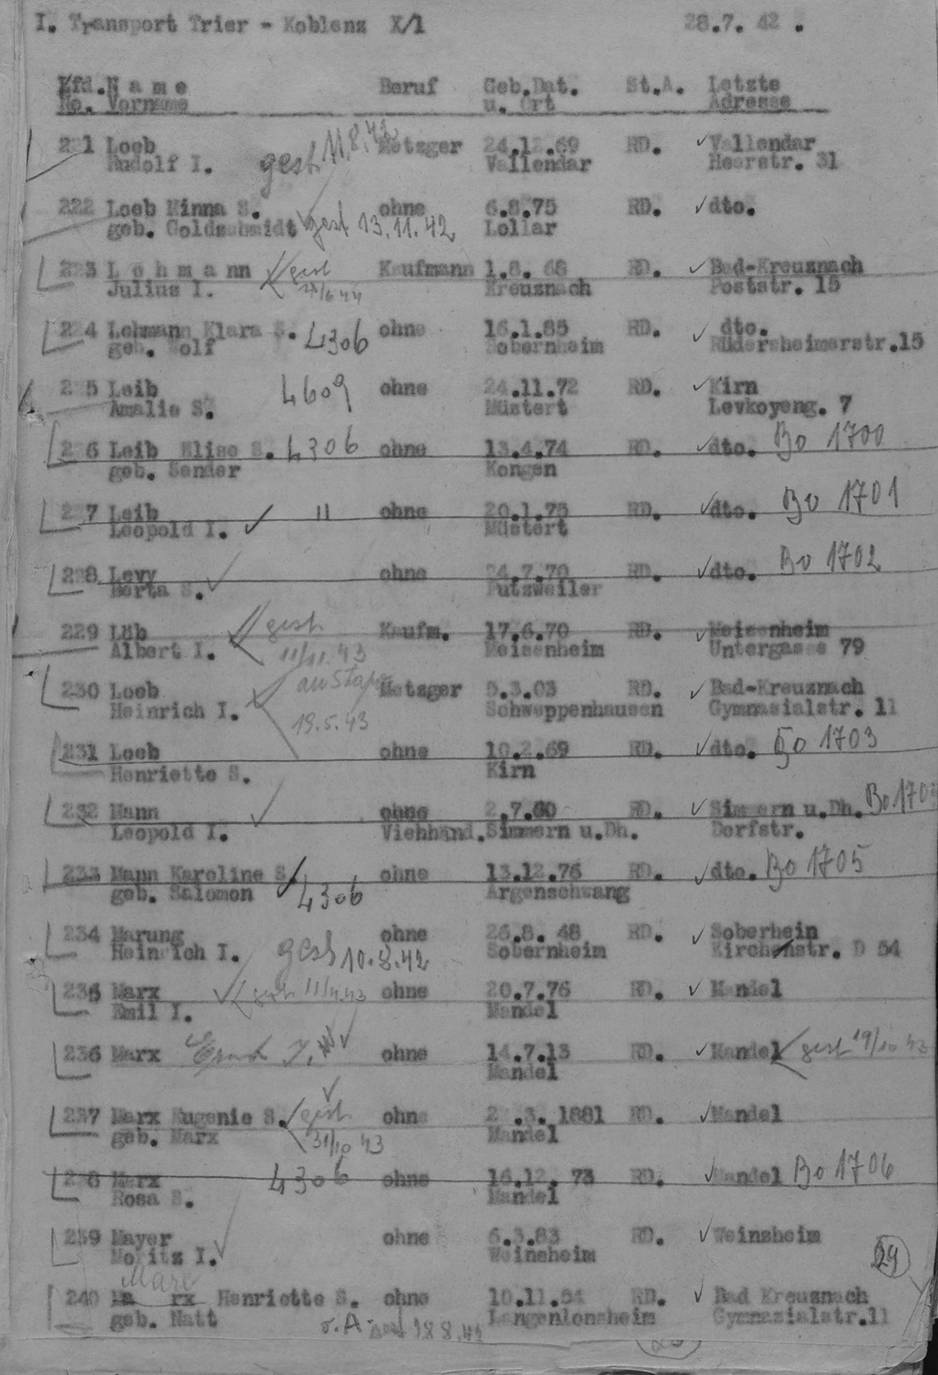 I. Transport Trier - Koblenz X/1 28.7. 42 .
Lfd. N a m e Beruf Geb.Dat. St.A. Letzte
No. Vorname u. Ort Adresse
221 Loeb Metzger 24.12.69 RD. Vallendar
Rudolf I. gest. 11.8.42 Vallendar Heerstr. 31
222 Loeb Minna S. ohne 6.8.75 RD. dto.
geb. Goldschmidt gest 13.11.42 Lollar
223 L e h m a n n gest Kaufmann 1.8. 68 RD. Bad-Kreuznach
Julius I. Kreuznach Poststr. 15
224 Lehmann Klara S. 4306 ohne 16.1.85 RD. dto.
geb. Wolf Sobernheim Rüdersheimerstr.15
225 Leib 4609 ohne 24.11.72 RD. Kirn
Amalie S. Müstert Levkoyeng. 7
226 Leib Elise S. 4306 ohne 13.4.74 RD. dto. Bo 1700
geb. Sender Kongen
227 Leib " ohne 20.1.75 RD. dto. Bo 1701
Leopold I. Müstert
228 Levy ohne 24.7.70 RD. dto. Bo 1702
Berta S. Putzweiler
229 Löb gest. Kaufm. 17.6.70 RD. Meisenheim
Albert I. 11/11.43 Meisenheim Untergasse 79
230 Loeb an Stapo Metzger 5.3.03 RD. Bad-Kreuznach
Heinrich I. 19.5.43 Schweppenhausen Gymnasialstr. 11
231 Loeb ohne 10.2.69 RD. dto. Bo 1703
Henriette S. Kirn
232 Mann ohne 2.7.80 RD. Simmern u.Dh. Bo 170
Leopold I. Viehhänd. Simmern u.Dh. Dorfstr.
233 Mann Karoline S. ohne 13.12.76 RD. dto. Bo 1705
geb. Salomon 4306 Argenschwang
234 Marung ohne 26.8. 48 RD. Soberhein
Heinrich I. gest 10.8.42 Sobernheim Kirchenstr. D 54
235 Marx gest. 11/4.43 ohne 20.7.76 RD. Mandel
Emil I. Mandel
236 Marx Ernst I. ohne 14.7.13 RD. Mandel gest 19/10 43
Mandel
237 Marx Eugenie S. gest ohne .3. 1881 RD. Mandel
geb. Marx 31/10 43 Mandel
238 Marx 4306 ohne 16.12. 73 RD. Mandel Bo 1706
Rosa S. Mandel
239 Mayer ohne 6.3.83 RD. Weinsheim
Moritz I. Weinsheim
Marx
240 Ma rx Henriette S. ohne 10.11.54 RD. Bad Kreuznach
geb. Natt Langenlonsheim Gymnazialstr.11
29